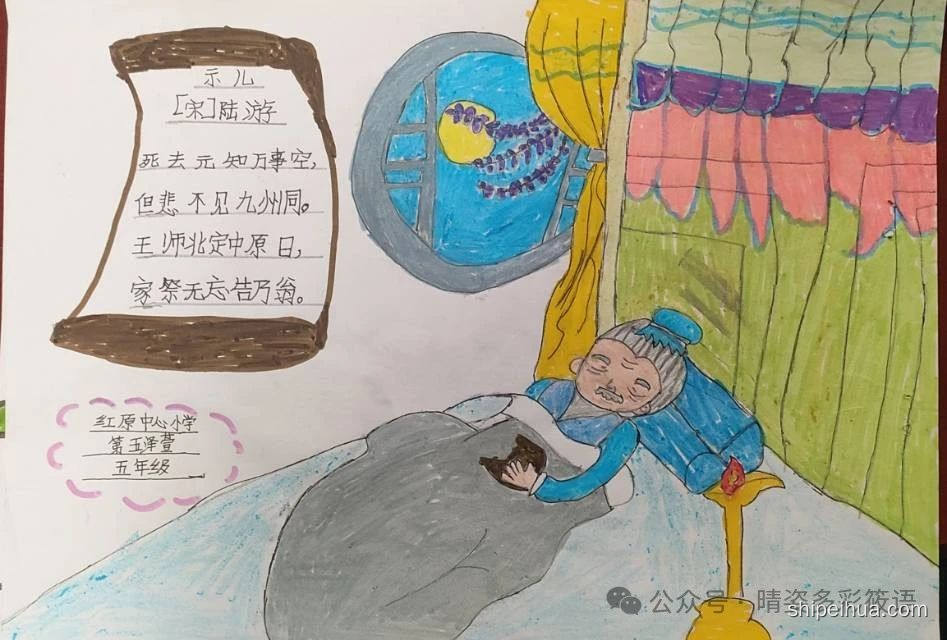 示儿
[宋]陆游
死去元知万事空，
但悲不见九州同。
王师北定中原日，
家祭无忘告乃翁。
红原中心小学
第五泽萱
五年级
公众号·晴姿多彩筱语
shipeihua.com